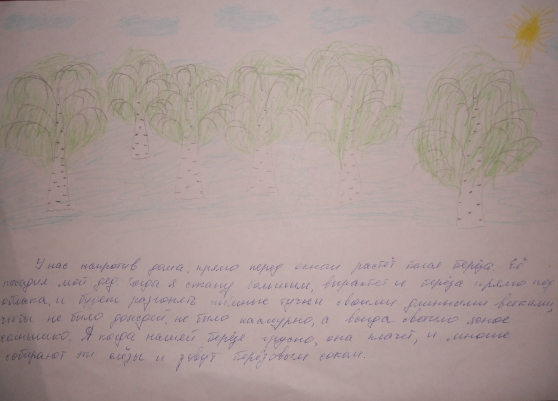 У нас напротив дома, прямо перед окном растёт белая берёза. Её
посадил мой дед. Когда я стану большим, вырастет и берёза прямо под
облака, и будет разгонять тёмные тучки своими длинными ветками,
чтобы не было дождей, не было пасмурно, а всегда светило ясное
солнышко. А когда нашей берёзе грустно, она плачет, и многие
собирают эти слёзы и зовут берёзовым соком.